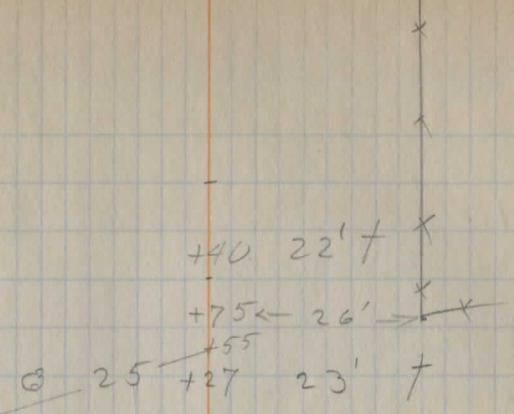 +40 22'
+75 26'
+55
25 +27 23'